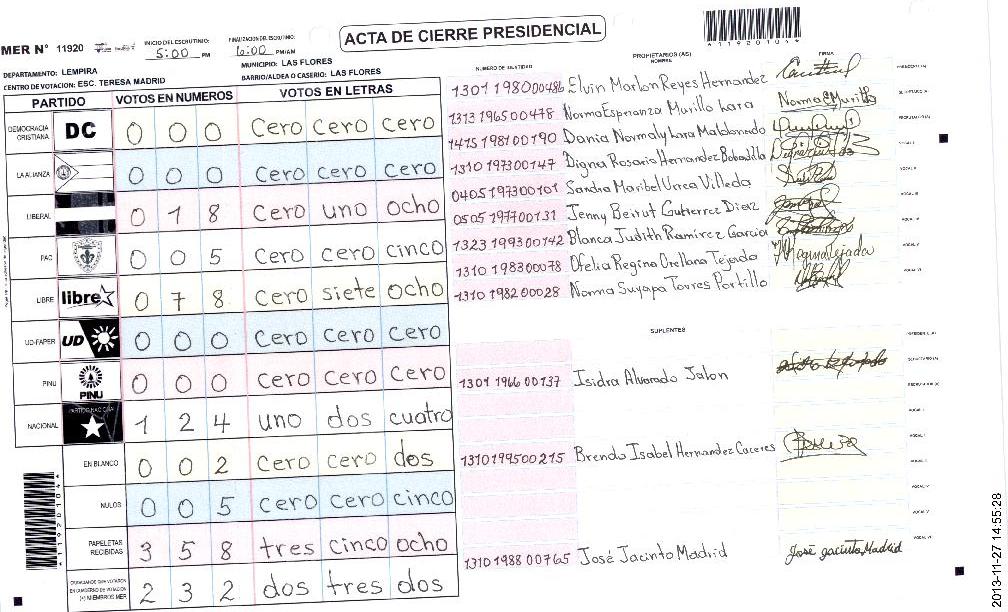 ACTA DE CIERRE PRESIDENCIAL
MER N° 11920
INICIO DEL ESCRUTINIO: 5:00 PM
FINALIZACION DEL ESCRUTINIO: 6:00 PM/AM
1192010
DEPARTAMENTO: LEMPIRA
MUNICIPIO: LAS FLORES
CENTRO DE VOTACION: ESC. TERESA MADRID
BARRIO/ALDEA O CASERIO: LAS FLORES
PARTIDO VOTOS EN NUMEROS VOTOS EN LETRAS
DEMOCRACIA CRISTIANA DC 0 0 0 Cero Cero Cero
LA ALIANZA 0 0 0 Cero Cero Cero
LIBERAL 0 1 8 Cero uno ocho
PAC 0 0 5 Cero cero cinco
LIBRE libre 0 7 8 Cero siete ocho
UD-FAPER UD 0 0 0 Cero Cero Cero
PINU PINU 0 0 0 Cero Cero Cero
NACIONAL 1 2 4 uno dos cuatro
EN BLANCO 0 0 2 Cero Cero dos
NULOS 0 0 5 Cero Cero cinco
PAPELETAS RECIBIDAS 3 5 8 tres cinco ocho
CIUDADANOS QUE VOTARON EN CUADERNO DE VOTACION (+) MIEMBROS MER 2 3 2 dos tres dos
NUMERO DE IDENTIDAD PROPIETARIOS (AS) NOMBRE FIRMA
1301 198000486 Elvin Marlon Reyes Hernandez
1313 1965 00478 Norma Esperanza Murillo Lara Norma E Murillo
1415 1981 00190 Dania Normaly Lara Maldonado
1310 197300147 Digna Rosario Hernandez Bobadilla
0405 197300101 Sandra Maribel Urrea Villeda
0505 197700131 Jenny Beirut Gutierrez Diaz
1323 199300142 Blanca Judith Ramirez Garcia
1310 198300078 Ofelia Regina Orellana Tejada
1310 1982 00028 Norma Suyapa Torres Portillo
SUPLENTES
1301 1966 00137 Isidra Alvarado Jalon
1310199500215 Brenda Isabel Hernandez Caceres
1310 1988 00765 José Jacinto Madrid José jacinto Madrid
2013-11-27 14:55:28